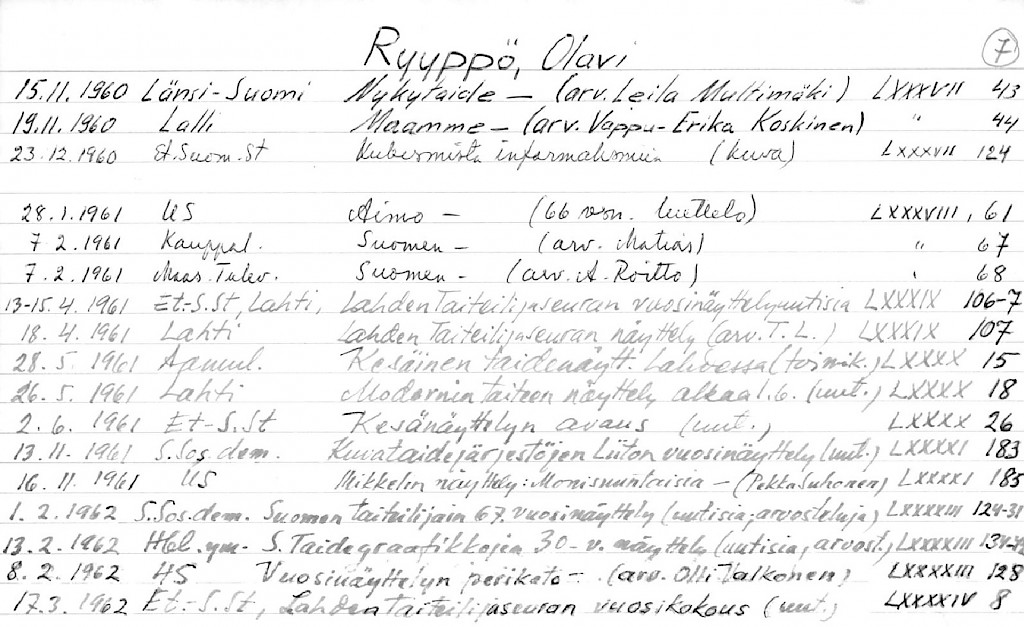 Ryyppö, Olavi 7
15.11.1960 Länsi-Suomi Nykytaide – (arv. Leila Multimäki) LXXXVII 43
19.11.1960 Lalli Maamme – (arv. Vappu-Erika Koskinen) " 44
23.12.1960 Et.Suom.St Kubismista informalismiin (kuva) LXXXVII 124
28.1.1961 US Aimo – (66 vsn. luettelo) LXXXVIII, 61
7.2.1961 Kauppal. Suomen – (arv. Matias) " 67
7.2.1961 Maas.Tulev. Suomen – (arv. A. Röitto) " 68
13-15.4.1961 Et-S.St, Lahti, Lahden Taiteilijaseuran vuosinäyttelyuutisia LXXXIX 106-7
18.4.1961 Lahti Lahden Taiteilijaseuran näyttely (arv. T.L.) LXXXIX 107
28.5.1961 Aamul. Kesäinen taidenäytt. Lahdessa (toimik.) LXXXX 15
26.5.1961 Lahti Modernin taiteen näyttely alkaa 1.6. (uut.) LXXXX 18
2.6.1961 Et-S.St Kesänäyttelyn avaus (uut.) LXXXX 26
13.11.1961 S.Sos.dem. Kuvataidejärjestöjen Liiton vuosinäyttely (uut.) LXXXXI 183
16.11.1961 US Mikkelin näyttely: Monisuuntaisia – (Pekka Suhonen) LXXXXI 185
1.2.1962 S.Sos.dem. Suomen taiteilijain 67. vuosinäyttely (uutisia, arvosteluja) LXXXXIII 124-31
13.2.1962 Hbl. ym- S. Taidegraafikkojen 30-v. näyttely (uutisia, arvost.) LXXXXIII
8.2.1962 HS Vuosinäyttelyn perikato – (arv. Olli Valkonen) LXXXXIII 128
17.3.1962 Et.-S.St, Lahden Taiteilijaseuran vuosikokous (uut.) LXXXXIV 8